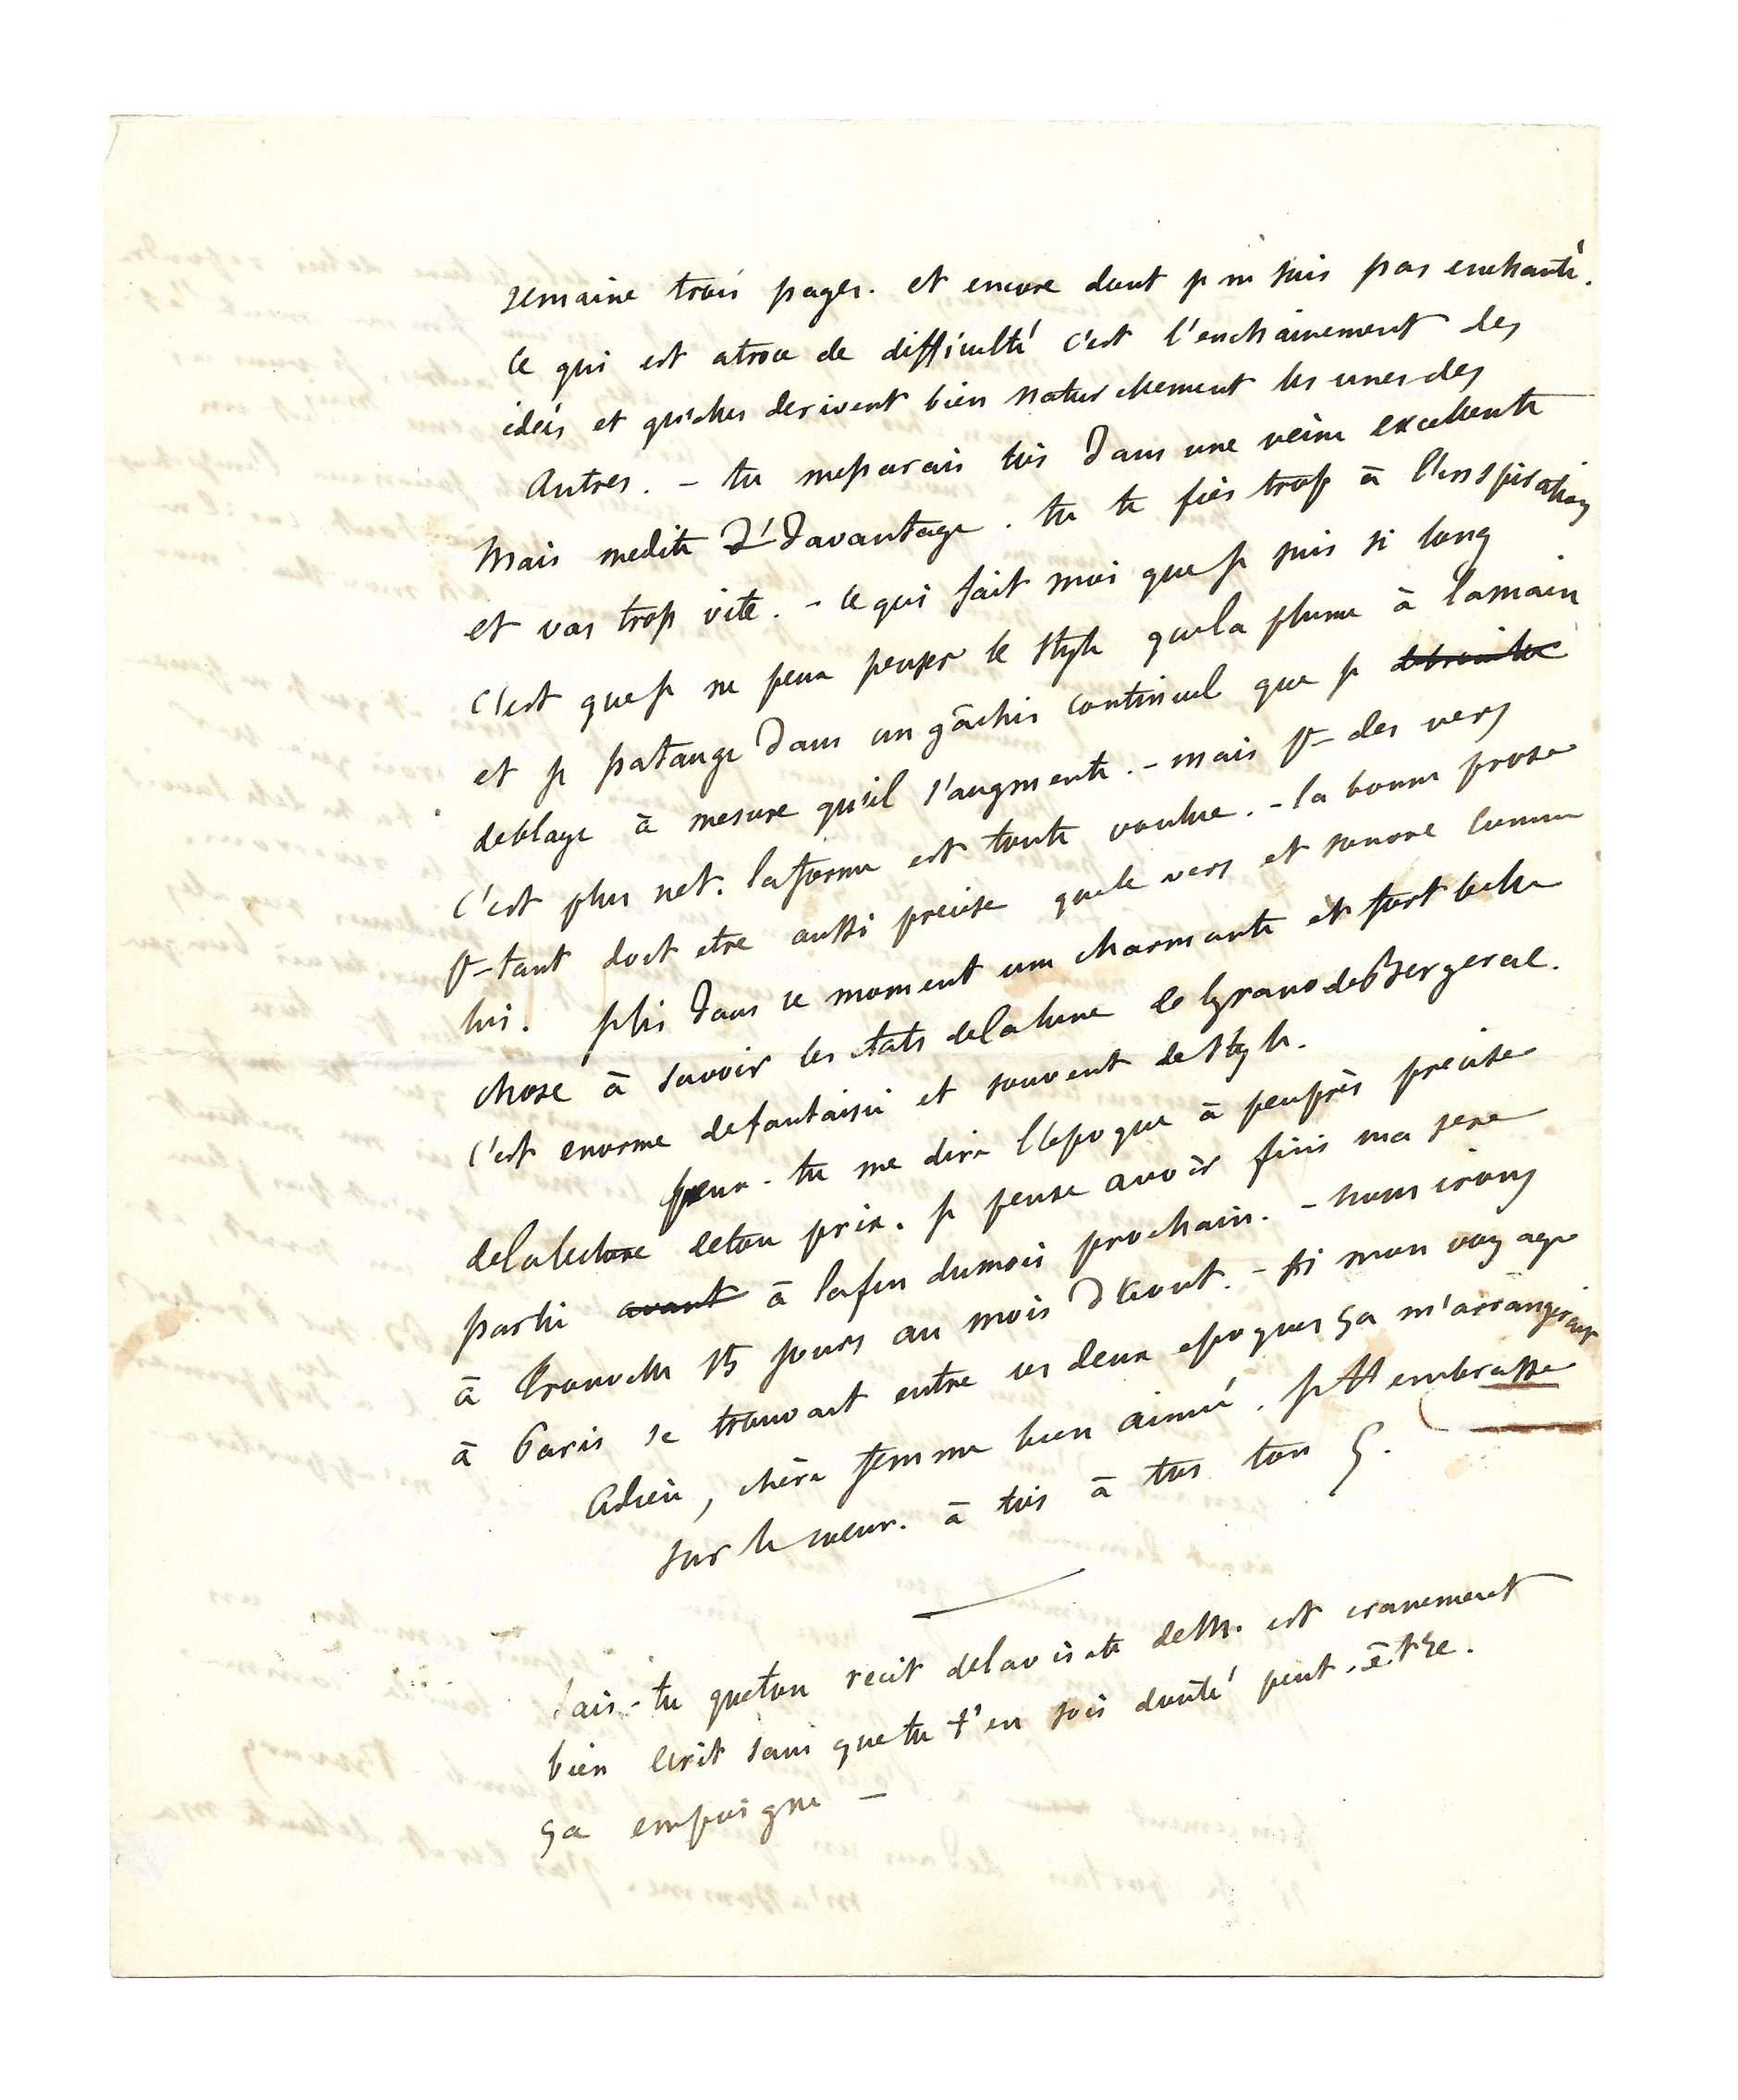 semaine trois pages. et encore dont je ne suis pas enchanté.
ce qui est atroce de difficulté c'est l'enchainement des
idées et qu'elles derivent bien naturellement les unes des
autres. – tu me parais toi dans une veine excellente
Mais medite d' davantage. tu te fies trop à l'inspiration
et vas trop vite. – ce qui fait moi que je suis si long
c'est que je ne peux penser le style que la plume à la main
et je patauge dans un gâchis continuel que je debrouille
deblaye à mesure qu'il s'augmente. – mais pr des vers
c'est plus net. la forme est toute voulue. – la bonne prose
pr-tant doit etre aussi precise que le vers et sonore comme
lui. je lis dans ce moment une charmante et fort belle
chose à savoir les etats de la lune de Cyrano de Bergerac.
c'est enorme de fantaisie et souvent de style.
peux-tu me dire l'epoque à peu près precise
de la lecture de ton prix. je pense avoir fini ma 1ere
partie avant à la fin du mois prochain. – nous irons
à Trouville 15 jours au mois d'Aout. – si mon voyage
à Paris se trouvait entre ces deux epoques ça m'arrangerait
Adieu, chère femme bien aimée, je t'embrasse
sur le coeur. à toi à toi ton G.
sais-tu que ton recit de la visite de M. est cranement
bien ecrit sans que tu t'en sois douté peut-être.
ça empoigne –